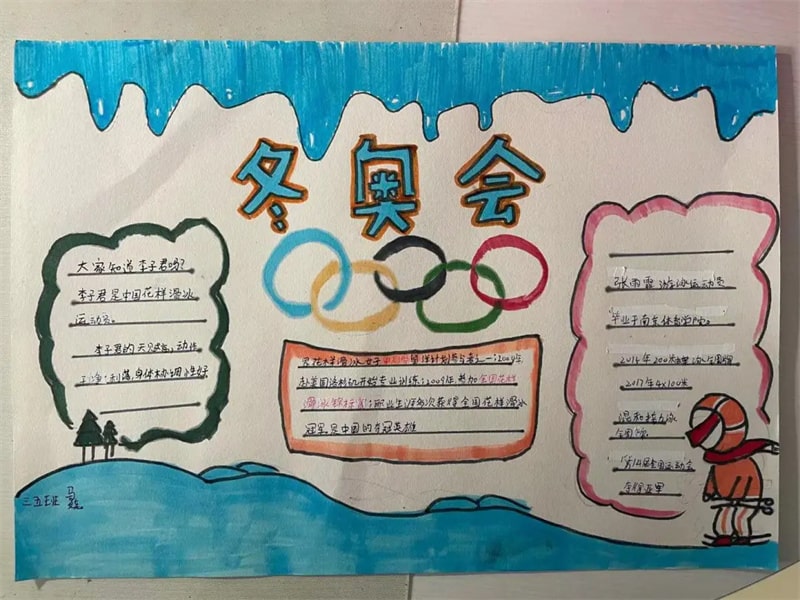 冬奥会
大家知道李子君吗?
李子君是中国花样滑冰
运动员。
李子君的天
动作
干净利落身体协调性好
是花样滑冰女子
留洋计划
之一:2009年
赴美国洛杉矶开始专业训练:2009年参加全国花样
滑冰锦标赛:职业生涯多次获得全国花样滑冰
冠军是中国的
英雄
张雨霏 游泳运动员
毕业于南京体育学院。
2014年200米
2017年4x100米
混和接力泳
全国
第14届全国运动会
三五班